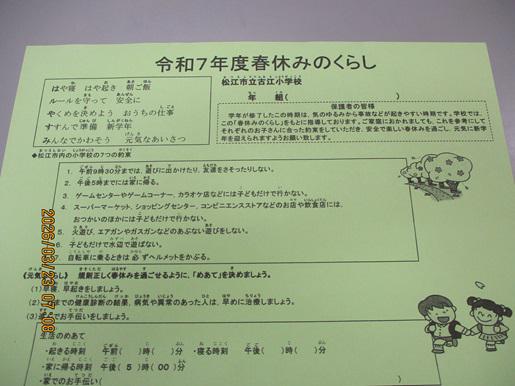 令和7年度春休みのくらし
松江市立古江小学校
年 組( )
はや寝 はや起き 朝ご飯
ルールを守って 安全に
やくめを決めよう おうちの仕事
すすんで準備 新学年
みんなでかわそう 元気なあいさつ
保護者の皆様
学年が修了したこの時期は、気のゆるみから事故などが起きやすい時期です。学校では、
この「春休みのくらし」をもとに指導しております。ご家庭におかれましても、これを参考にして
それぞれのお子さんに合った約束をしていただき、安全で楽しい春休みを過ごし、元気に新学
年を迎えられますようお願い致します。
◆松江市内の小学校の7つの約束
1. 午前9時30分までは、遊びに出かけたり、友達をさそったりしない。
2. 午後5時までには家に帰る。
3. ゲームセンターやゲームコーナー、カラオケ店などには子どもだけで行かない。
4. スーパーマーケット、ショッピングセンター、コンビニエンスストアなどのお店や飲食店には、
おつかいのほかには子どもだけで行かない。
5. 火遊び、エアガンやガスガンなどのあぶない遊びをしない。
6. 子どもだけで水辺で遊ばない。
7. 自転車に乗るときは必ずヘルメットをかぶる。
《元気なくらし》 規則正しく春休みを過ごせるように、「めあて」を決めましょう。
(1)早寝、早起きをしましょう。
までの健康診断の結果、病気や異常のあった人は、早めに治療しましょう。
(3) お手伝いをしましょう。
生活のめあて
・起きる時刻 午前( )時( )分 ・寝る時刻 午後( )時( )分
・家に帰る時刻 午後( 5 )時( 00 )分
・家でのお手伝い(
2026/03/23 07:08